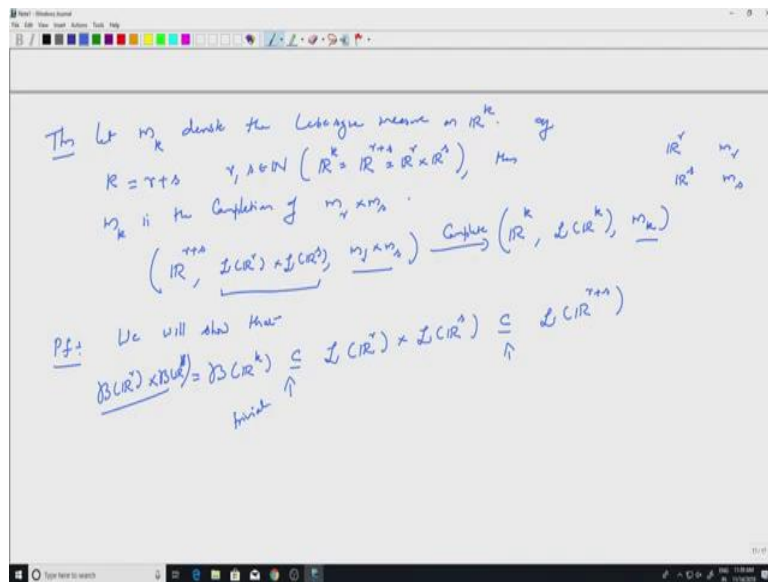 Note1 - Windows Journal
File Edit View Insert Actions Tools Help
Thm Let m_k denote the Lebesgue measure on ℝ^k. If
k = r+s r, s ∈ ℕ (ℝ^k = ℝ^{r+s} = ℝ^r × ℝ^s), then
m_k is the Completion of m_r × m_s.
ℝ^r m_r
ℝ^s m_s
(ℝ^{r+s}, L(ℝ^r) × L(ℝ^s), m_r × m_s) Complete → (ℝ^k, L(ℝ^k), m_k)
Pf: We will show that
B(ℝ^r) × B(ℝ^s) = B(ℝ^k) ⊆ L(ℝ^r) × L(ℝ^s) ⊆ L(ℝ^{r+s})
↑ ↑
trivial
Type here to search